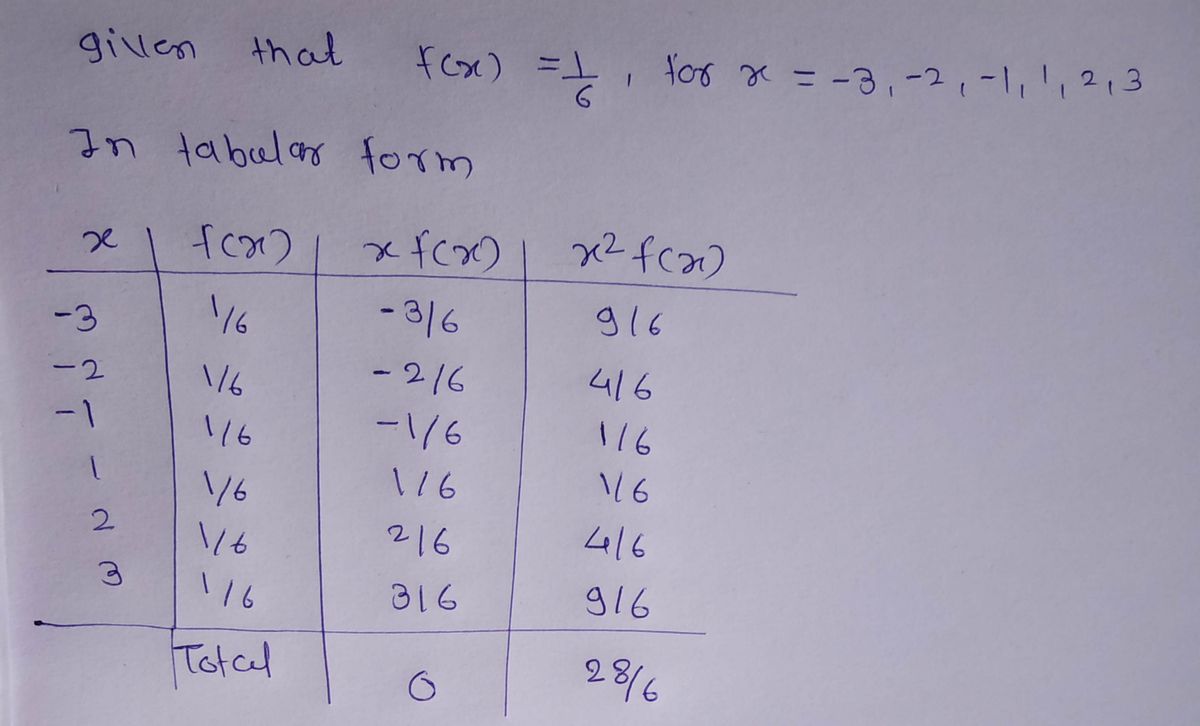 given that f(x) = 1/6 , for x = -3, -2, -1, 1, 2, 3
In tabular form
x | f(x) | x f(x) | x² f(x)
-3 | 1/6 | -3/6 | 9/6
-2 | 1/6 | -2/6 | 4/6
-1 | 1/6 | -1/6 | 1/6
1 | 1/6 | 1/6 | 1/6
2 | 1/6 | 2/6 | 4/6
3 | 1/6 | 3/6 | 9/6
Total | 0 | 28/6